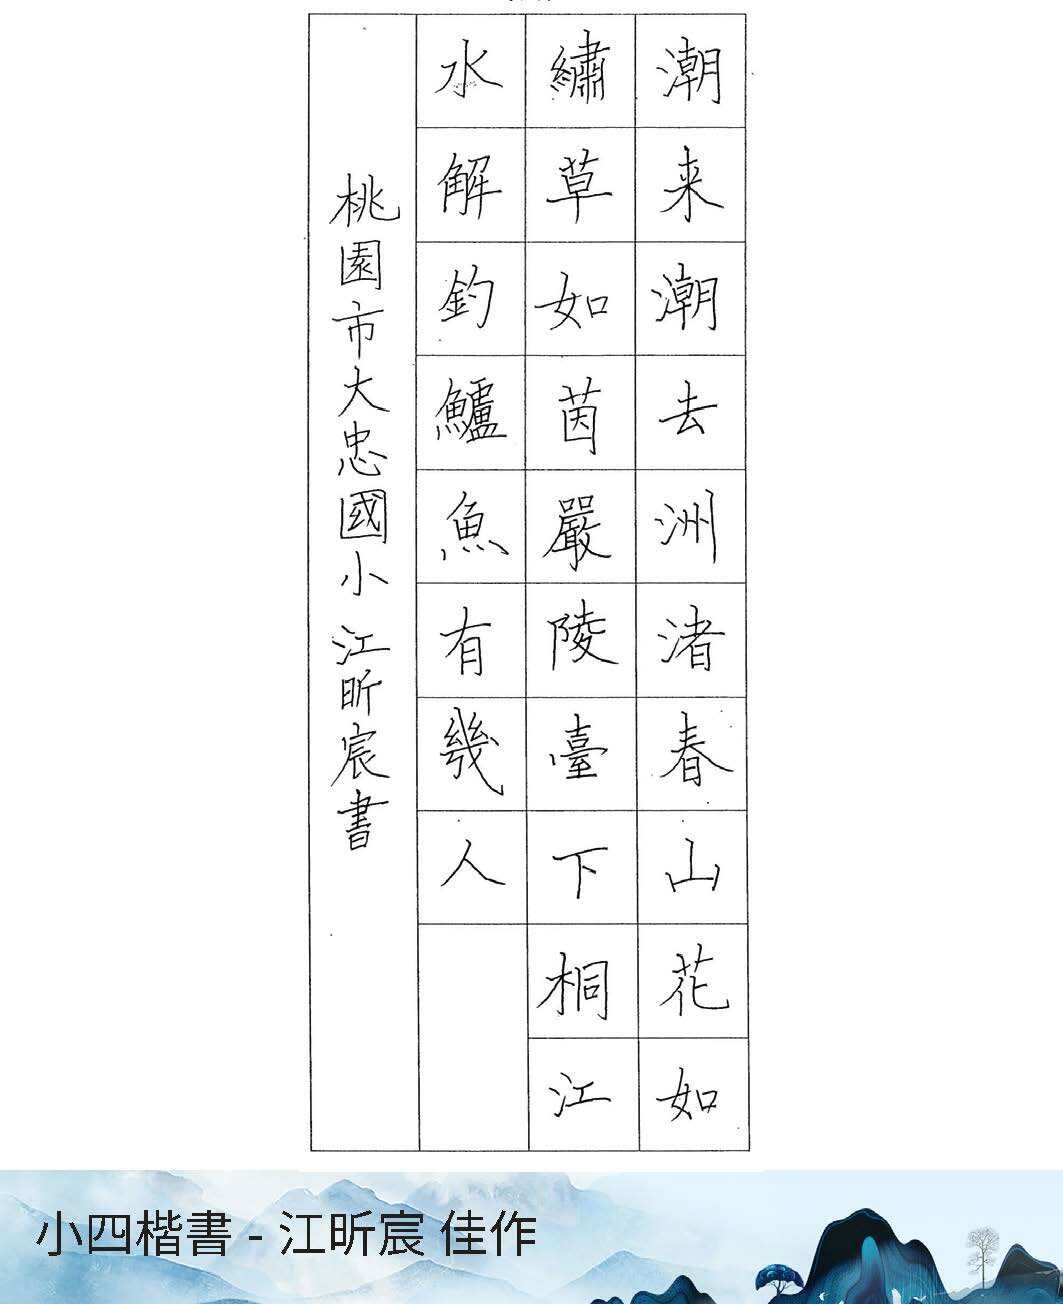 潮来潮去洲渚春山花如
繡草如茵嚴陵臺下桐江
水解釣鱸魚有幾人
桃園市大忠國小江昕宸書
小四楷書 - 江昕宸 佳作